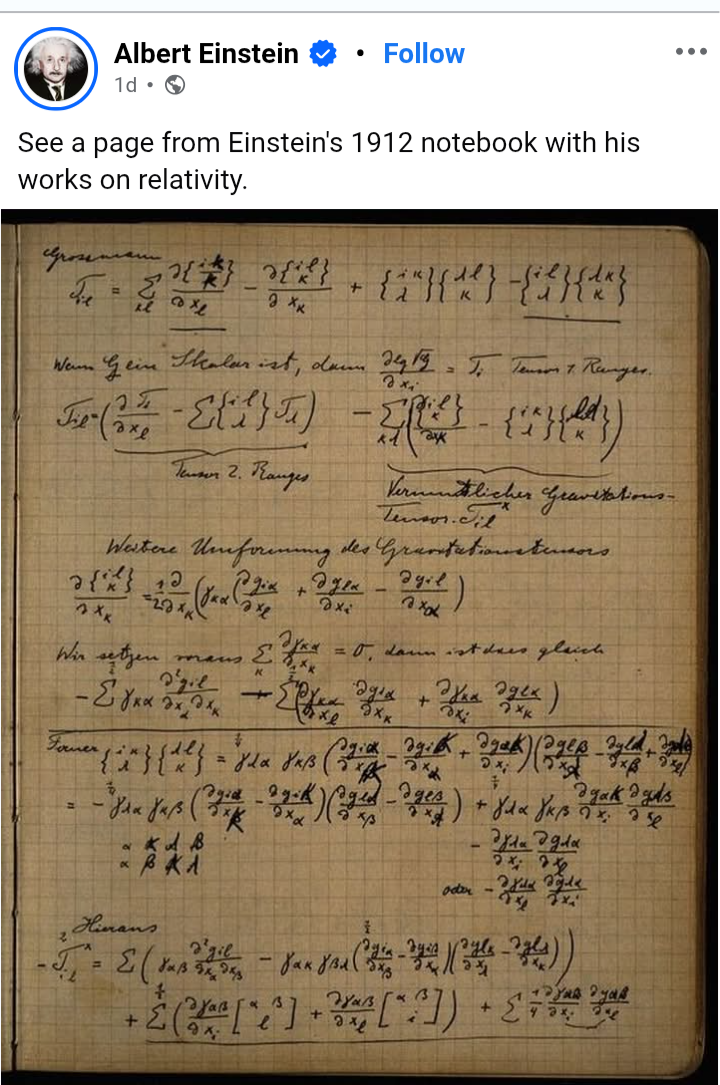 Albert Einstein • Follow
1d •
See a page from Einstein's 1912 notebook with his
works on relativity.
Grossmann
T_il = Σ_κl ∂{i κ / κ}/∂x_l − ∂{i l / κ}/∂x_κ + {i κ / λ}{λ l / κ} − {i l / λ}{λ κ / κ}
Wenn G ein Skalar ist, dann ∂lg√g/∂x_i = T_i Tensor 1. Ranges.
T_il = (∂T_i/∂x_l − Σ{i l / λ}T_λ) − Σ_κλ(∂{i l / κ}/∂x_κ − {i κ / λ}{λ l / κ})
Tensor 2. Ranges
Vermutlicher Gravitations-
tensor T_il^x
Weitere Umformung des Gravitationstensors
∂{i l / κ}/∂x_κ = 1/2 ∂/∂x_κ (γ_κα(∂g_iα/∂x_l + ∂g_lα/∂x_i − ∂g_il/∂x_α)
Wir setzen voraus Σ_κ ∂γ_κα/∂x_κ = 0, dann ist dies gleich
− Σ γ_κα ∂²g_il/∂x_α∂x_κ Σ(∂γ_κα/∂x_l ∂g_iα/∂x_κ + ∂γ_κα/∂x_i ∂g_lα/∂x_κ)
Ferner {i κ / λ}{λ l / κ} = 1/4 γ_λα γ_κβ
γ_λα γ_κβ
α κ λ β
α β κ λ
− ∂γ_λα/∂x_i ∂g_λα/∂x_l
oder − ∂γ_λα/∂x_l ∂g_λα/∂x_i
Hieraus
−2 T_il^x = Σ(γ_αβ ∂²g_il/∂x_α∂x_β − γ_ακ γ_βλ(∂g_iα/∂x_β − ∂g_iβ/∂x_α)(∂g_lκ/∂x_λ − ∂g_lλ/∂x_κ))
+ Σ(∂γ_αβ/∂x_i [α β / l] + ∂γ_αβ/∂x_l [α β / i]) + Σ ∂γ_αβ/∂x_i ∂g_αβ/∂x_l